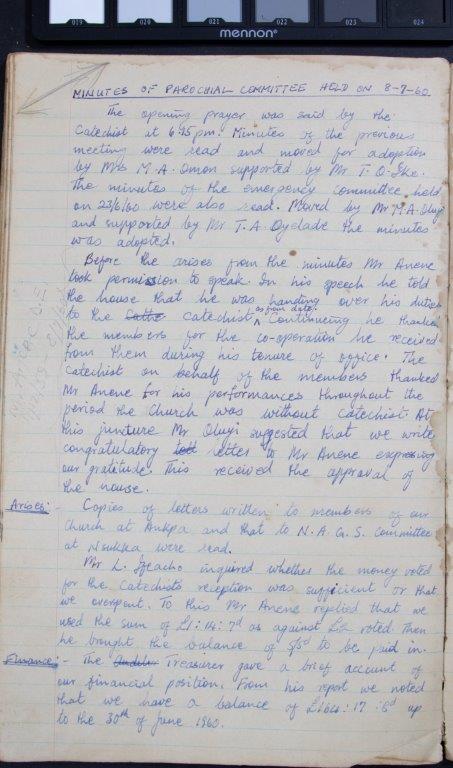 019 020 021 022 023 024
mennon®
MINUTES OF PAROCHIAL COMMITTEE HELD ON 8-7-60.
The opening prayer was said by the
Catechist at 6.45pm. Minutes of the previous
meeting were read and moved for adoption
by Mrs M.A. Omon supported by Mr T.O. Oke.
The minutes of the emergency committee held
on 23/6/60 were also read. Moved by Mr M.A. Oluyi
and supported by Mr T.A. Oyelade the minutes
was adopted.
Before the arises from the minutes Mr Anene
took permission to speak. In his speech he told
the house that he was handing over his duties
to the Catechist as from date. Continuing he thanked
the members for the co-operation he received
from them during his tenure of office. The
Catechist on behalf of the members thanked
Mr Anene for his performances throughout the
period the Church was without Catechist. At
this juncture Mr Oluyi suggested that we write
congratulatory letter to Mr Anene expressing
our gratitude. This received the approval of
the house.
Arises:- Copies of letters written to members of our
Church at Ankpa and that to N.A.G.S. Committee
at Nsukka were read.
Mr L. inquired whether the money voted
for the Catechists reception was sufficient or that
we overspent. To this Mr Anene replied that we
used the sum of £1:14:7d as against £2 voted. Then
he brought the balance of 5/5d to be paid in.
Finance:- The Treasurer gave a brief account of
our financial position. From his report we noted
that we have a balance of up
to the 30th of June 1960.